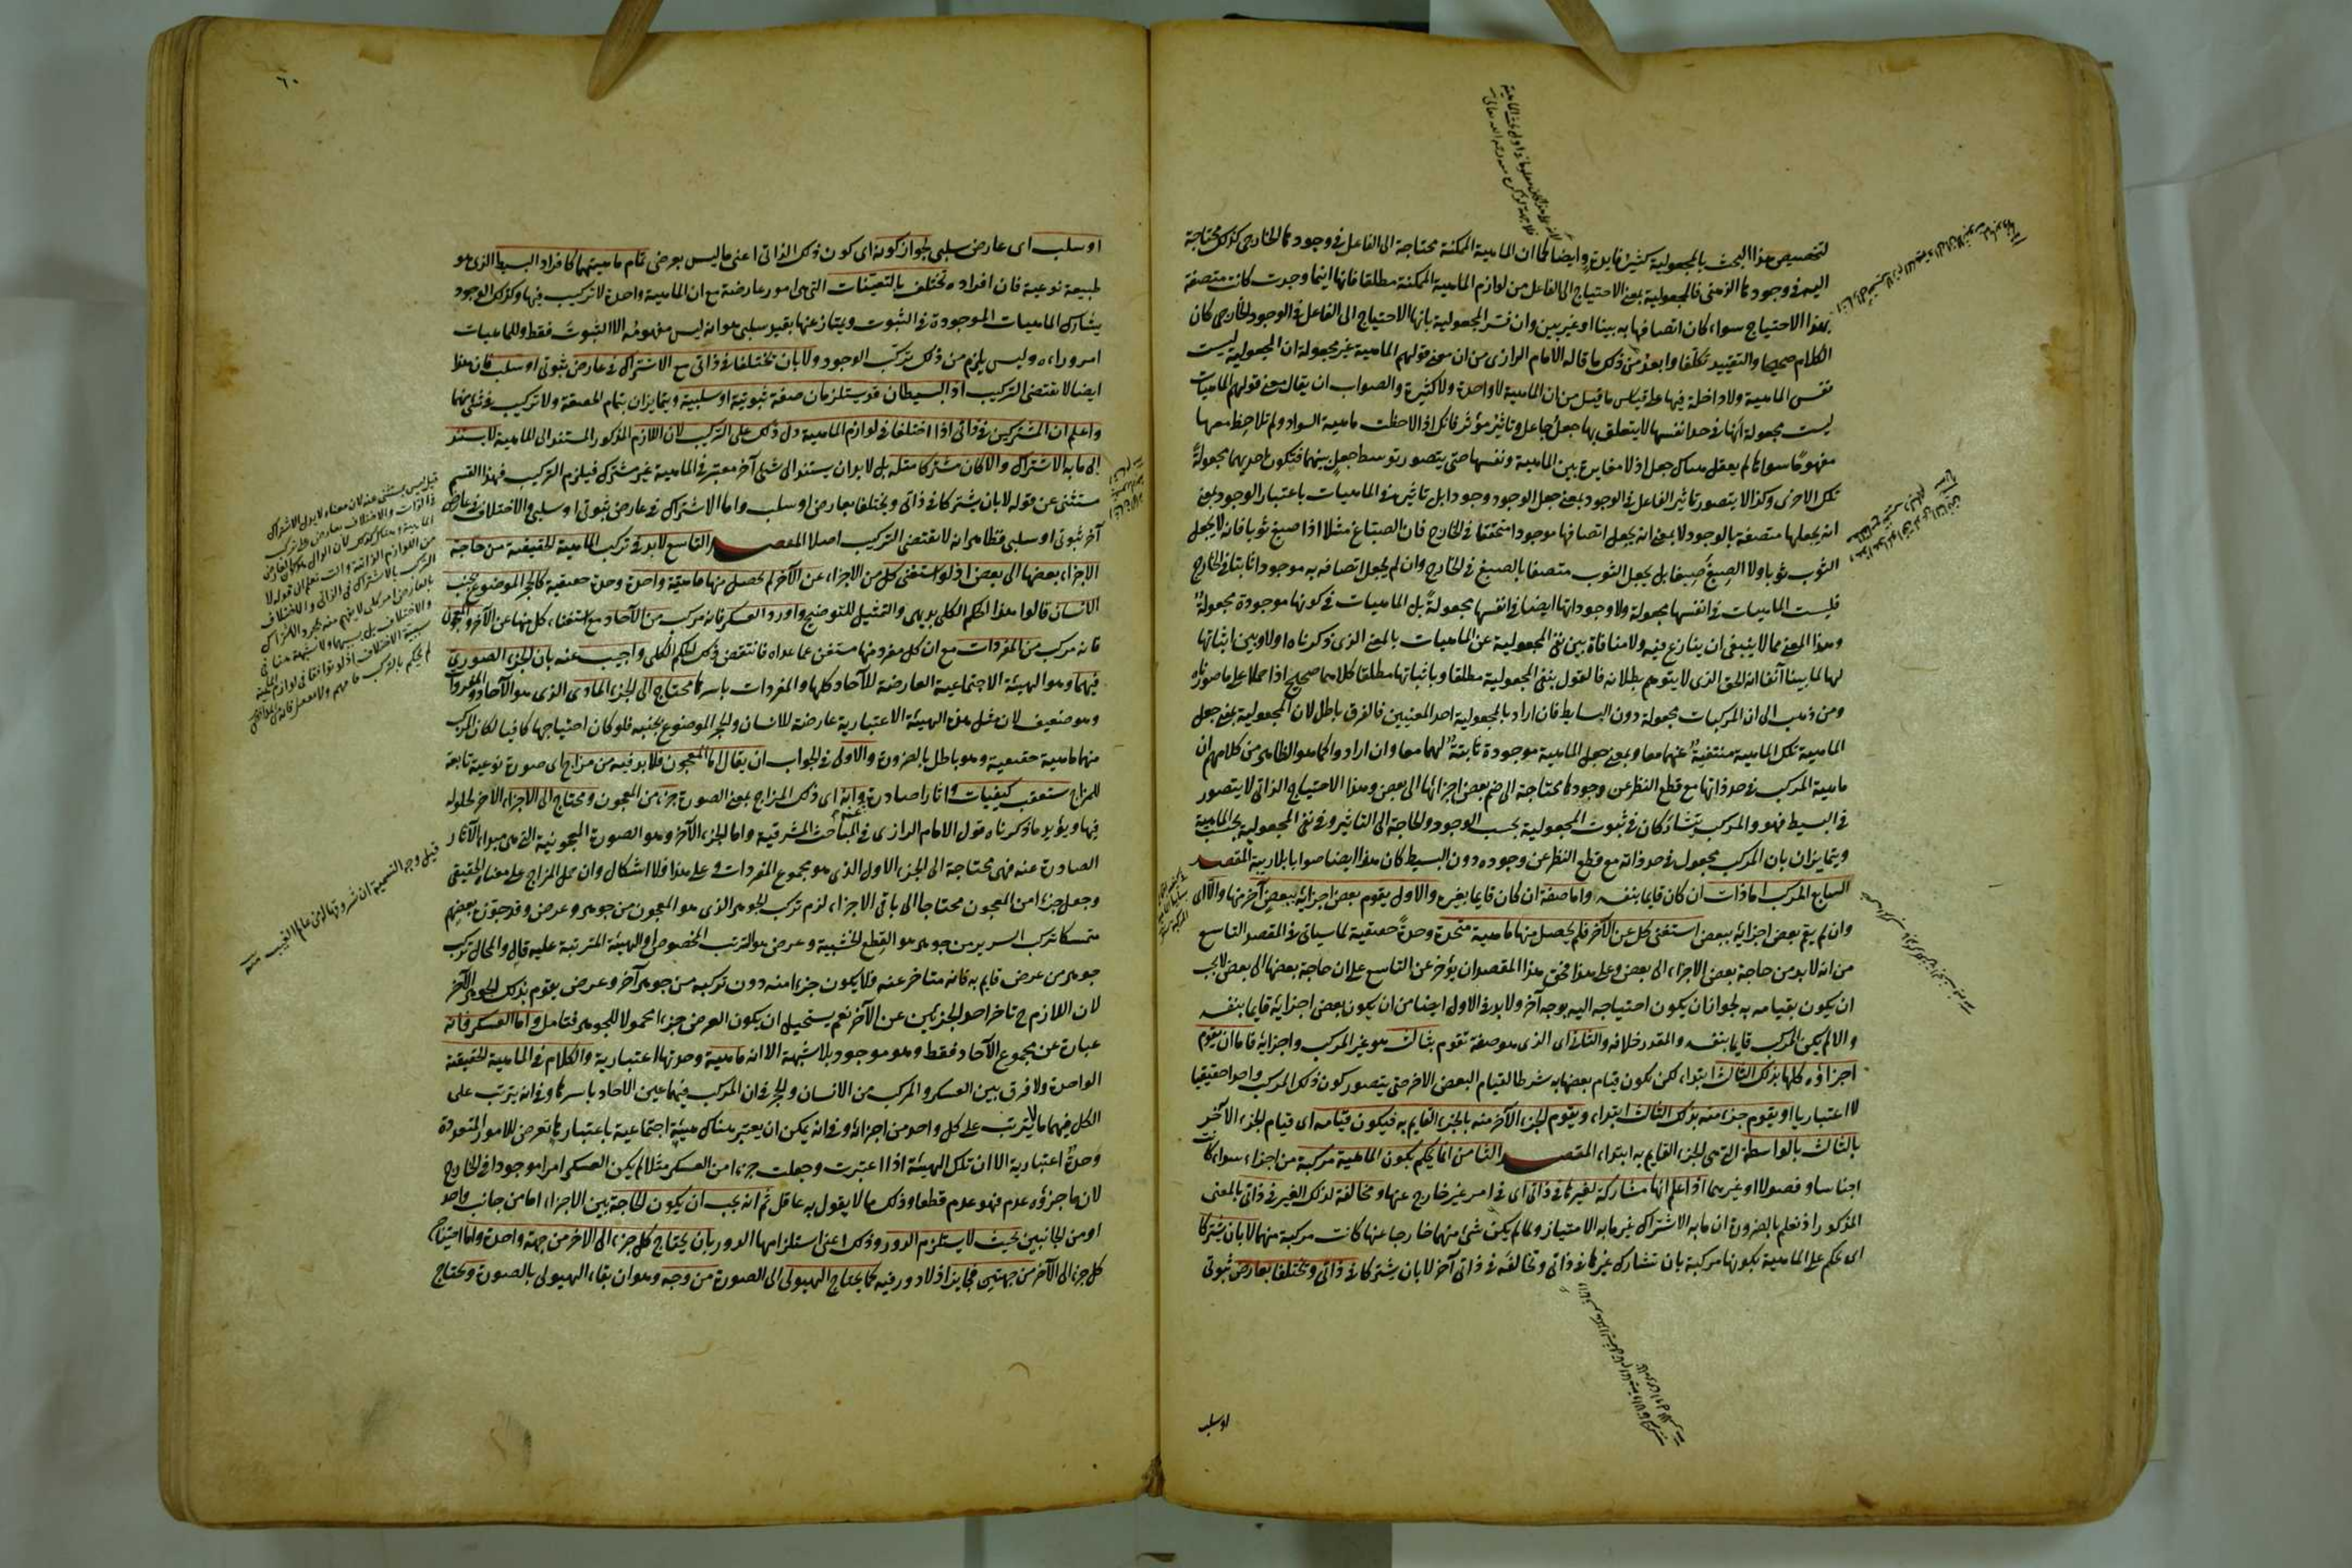 لتخصيص هذا البحث بالمجعولية كثير فايدة وايضا كما ان الماهية الممكنة محتاجة الى الفاعل في وجودها الخارجي كذلك محتاجة
اليه في وجودها الذهني فالمجعولية بمعنى الاحتياج الى الفاعل من لوازم الماهية الممكنة مطلقا فانها اينما وجدت كانت متصفة
بهذا الاحتياج سواء كان اتصافها به بينا او غير بين وان فسر المجعولية بانها الاحتياج الى الفاعل في الوجود الخارجي كان
الكلام صحيحا والتقييد تكلفا وابعد من ذلك ما قاله الامام الرازى من ان معنى قولهم الماهية غير مجعولة ان المجعولية ليست
نفس الماهية ولا داخلة فيها على قياس ما قيل من ان الماهية لا واحدة ولا كثيرة والصواب ان يقال معنى قولهم الماهيات
ليست مجعولة انها في حد انفسها لا يتعلق بها جعل جاعل وتاثير مؤثر فانك اذا لاحظت ماهية السواد ولم تلاحظ معها
مفهوما سواها لم يعقل هناك جعل اذ لا مغايرة بين الماهية ونفسها حتى يتصور توسط جعل بينهما فتكون احديهما مجعولة
تلك الاخرى وكذا لا يتصور تاثير الفاعل في الوجود بمعنى جعل الوجود وجودا بل تاثيره في الماهيات باعتبار الوجود بمعنى
انه يجعلها متصفة بالوجود لا بمعنى انه يجعل اتصافها موجودا متحققا في الخارج فان الصباغ مثلا اذا صبغ ثوبا فانه لا يجعل
الثوب ثوبا ولا الصبغ صبغا بل يجعل الثوب متصفا بالصبغ في الخارج وان لم يجعل اتصافه به موجودا ثابتا في الخارج
فليست الماهيات في انفسها مجعولة ولا وجوداتها ايضا في انفسها مجعولة بل الماهيات في كونها موجودة مجعولة
وهذا المعنى مما لا ينبغي ان ينازع فيه ولا منافاة بين نفى المجعولية عن الماهيات بالمعنى الذى ذكرناه اولا وبين اثباتها
لها لما بينا آنفا انه الحق الذى لا يتوهم بطلانه فالقول بنفى المجعولية مطلقا وباثباتها مطلقا كلاهما صحيح اذا حملا على ما صورناه
ومن ذهب الى ان المركبات مجعولة دون البسايط فان اراد بالمجعولية احد المعنيين فالفرق باطل لان المجعولية بمعنى جعل
الماهية تلك الماهية منتفية عنهما معا وبمعنى جعل الماهية موجودة ثابتة لهما معا وان اراد كما هو الظاهر من كلامهم ان
ماهية المركب في حد ذاتها مع قطع النظر عن وجودها محتاجة الى ضم بعض اجزائها الى بعض وهذا الاحتياج الذاتي لا يتصور
في البسيط فهو والمركب يتشاركان في ثبوت المجعولية بحسب الوجود والحاجة الى التاثير وفي نفى المجعولية بحسب الماهية
ويتمايزان بان المركب مجعول في حد ذاته مع قطع النظر عن وجوده دون البسيط كان هذا ايضا صوابا بلا ريبة المقصد
السابع المركب اما ذات ان كان قايما بنفسه واما صفة ان كان قايما بغيره والاول يقوم بعض اجزائه ببعض آخر منها والا اى
وان لم يقم بعض اجزائه ببعض استغنى كل عن الآخر فلم يحصل منها ماهية متحدة وحدة حقيقية لما سياتى في المقصد التاسع
من انه لا بد من حاجة بعض الاجزاء الى بعض وعلى هذا فحق هذا المقصد ان يؤخر عن التاسع على ان حاجة بعضها الى بعض لا يجب
ان يكون بقيامه به لجواز ان يكون احتياجه اليه بوجه آخر ولا بد في الاول ايضا من ان يكون بعض اجزائه قايما بنفسه
والا لم يكن المركب قايما بنفسه والمقدر خلافه والثانى اى الذى هو صفة تقوم بثالث هو غير المركب واجزائه فاما ان يقوم
اجزاؤه كلها بذلك الثالث ابتداء لكن يكون قيام بعضها به شرطا لقيام البعض الاخر حتى يتصور كون ذلك المركب واحدا حقيقيا
لا اعتباريا او يقوم جزء منه بذلك الثالث ابتداء ويقوم الجزء الآخر منه بالجزء القايم به فيكون قيامه اى قيام الجزء الآخر
بالثالث بالواسطة التي هي الجزء القايم به ابتداء المقصد الثامن انما يحكم بكون الماهية مركبة من اجزاء سواء كانت
اجناسا وفصولا او غيرهما اذا علم انها مشاركة لغيرها في ذاتى اى في امر غير خارج عنها ومخالفة لذلك الغير في ذاتى بالمعنى
المذكور اذ نعلم بالضرورة ان ما به الاشتراك غير ما به الامتياز ولما لم يكن شئ منهما خارجا عنها كانت مركبة منهما لا بان يشتركا
اى يحكم على الماهية بكونها مركبة بان تشارك غيرها في ذاتى وتخالفه في ذاتى آخر لا بان يشتركا في ذاتى ويختلفا بعارض ثبوتى
او سلب
٦٠
او سلب اى عارض سلبى لجواز كونه اى كون ذلك الذاتى اعنى ما ليس بعرضى تمام ماهيتهما كافراد البسيط الذى هو
طبيعة نوعية فان افراده تختلف بالتعينات التي هي امور عارضة مع ان الماهية واحدة لا تركيب فيها وكذلك الوجود
يشارك الماهيات الموجودة في الثبوت ويمتاز عنها بقيد سلبى هو انه ليس مفهومه الا الثبوت فقط وللماهيات
امر وراءه وليس يلزم من ذلك تركب الوجود ولا بان تختلفا في ذاتى مع الاشتراك في عارض ثبوتى او سلب فان هذا
ايضا لا يقتضى التركيب اذ البسيطان قد يستلزمان صفة ثبوتية او سلبية ويتمايزان بتمام الحقيقة ولا تركيب في شئ منهما
واعلم ان المشتركين في ذاتى اذا اختلفا في لوازم الماهية دل ذلك على التركيب لان اللازم المذكور المستند الى الماهية لا يستند
الى ما به الاشتراك والا كان مشتركا مثله بل لا بد ان يستند الى شئ آخر معتبر في الماهية غير مشترك فيلزم التركيب فهذا القسم
مستثنى عن قوله لا بان يشتركا في ذاتى ويختلفا بعارض او سلب واما الاشتراك في عارض ثبوتى او سلبى والاختلاف في عارض
آخر ثبوتى او سلبى فظاهر انه لا يقتضى التركيب اصلا المقصد التاسع لا بد في تركب الماهية الحقيقية من حاجة
الاجزاء بعضها الى بعض اذ لو استغنى كل من الاجزاء عن الآخر لم يحصل منها ماهية واحدة وحدة حقيقية كالحجر الموضوع بجنب
الانسان قالوا هذا الحكم الكلى بديهى والتمثيل للتوضيح واورد العسكر فانه مركب من الآحاد مع استغناء كل منها عن الآخر والمعجون
فانه مركب من المفردات مع ان كل مفرد منها مستغن عما عداه فانتقض ذلك الحكم الكلى واجيب عنه بان الجزء الصورى
فيهما وهو الهيئة الاجتماعية العارضة للآحاد كلها والمفردات باسرها محتاج الى الجزء المادى الذى هو الآحاد والمفردات
وهو ضعيف لان مثل هذه الهيئة الاعتبارية عارضة للانسان والحجر الموضوع بجنبه فلو كان احتياجها كافيا لكان المركب
منهما ماهية حقيقية وهو باطل بالضرورة والاولى في الجواب ان يقال اما المعجون فلا بد فيه من مزاج اى صورة نوعية تابعة
للمزاج يستعقب كيفيات وآثارا صادرة عنه وانه اى ذلك المزاج بمعنى الصورة جزء من المعجون ومحتاج الى الاجزاء الاخر لحلوله
فيها ويؤيد ما ذكرناه قول الامام الرازى في المباحث المشرقية واما الجزء الآخر وهو الصورة المعجونية التي هي مبدا الآثار
الصادرة عنه فهى محتاجة الى الجزء الاول الذى هو مجموع المفردات وعلى هذا فلا اشكال وان حمل المزاج على معناه الحقيقى
وجعل جزءا من المعجون محتاجا الى باقى الاجزاء لزم تركب الجوهر الذى هو المعجون من جوهر وعرض وقد جوزه بعضهم
متمسكا بتركب السرير من جوهر هو القطع الخشبية وعرض هو الترتيب المخصوص او الهيئة المترتبة عليه قال والمحال تركب
جوهر من عرض قايم به فانه متاخر عنه فلا يكون جزءا منه دون تركبه من جوهر آخر وعرض يقوم بذلك الجوهر الآخر
لان اللازم ح تاخر احد الجزئين عن الآخر نعم يستحيل ان يكون العرض جزءا محمولا للجوهر فتامل واما العسكر فانه
عبارة عن مجموع الآحاد فقط وهو موجود بلا شبهة الا انه ماهية وحدتها اعتبارية والكلام في الماهية الحقيقة
الواحدة ولا فرق بين العسكر والمركب من الانسان والحجر في ان المركب فيهما عين الآحاد باسرها وفي انه يترتب على
الكل فيهما ما لا يترتب على كل واحد من اجزائه وفي انه يمكن ان يعتبر هناك هيئة اجتماعية باعتبارها تعرض للامور المتعددة
وحدة اعتبارية الا ان تلك الهيئة اذا اعتبرت وجعلت جزءا من العسكر مثلا لم يكن العسكر امرا موجودا في الخارج
لان ما جزؤه عدم فهو عدم قطعا وذلك مما لا يقول به عاقل ثم انه يجب ان يكون الحاجة بين الاجزاء اما من جانب واحد
او من الجانبين بحيث لا يستلزم الدور وذلك اعنى استلزامها الدور بان يحتاج كل جزء الى الآخر من جهة واحدة واما احتياج
كل جزء الى الآخر من جهتين فجايز اذ لا دور فيه كما يحتاج الهيولى الى الصورة من وجه وهو ان بقاء الهيولى بالصورة ويحتاج
قيل ليس بمستثنى عنه لان معناه لا بد ان الاشتراك
قيل وجه التسمية ان شروقها من عالم الغيب منه